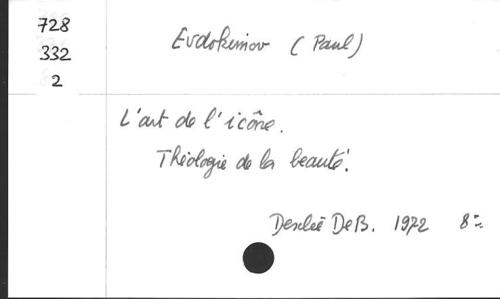 728
332
2
Evdokimov (Paul)
L'art de l'icône.
Théologie de la beauté.
Desclée De B. 1972 8°